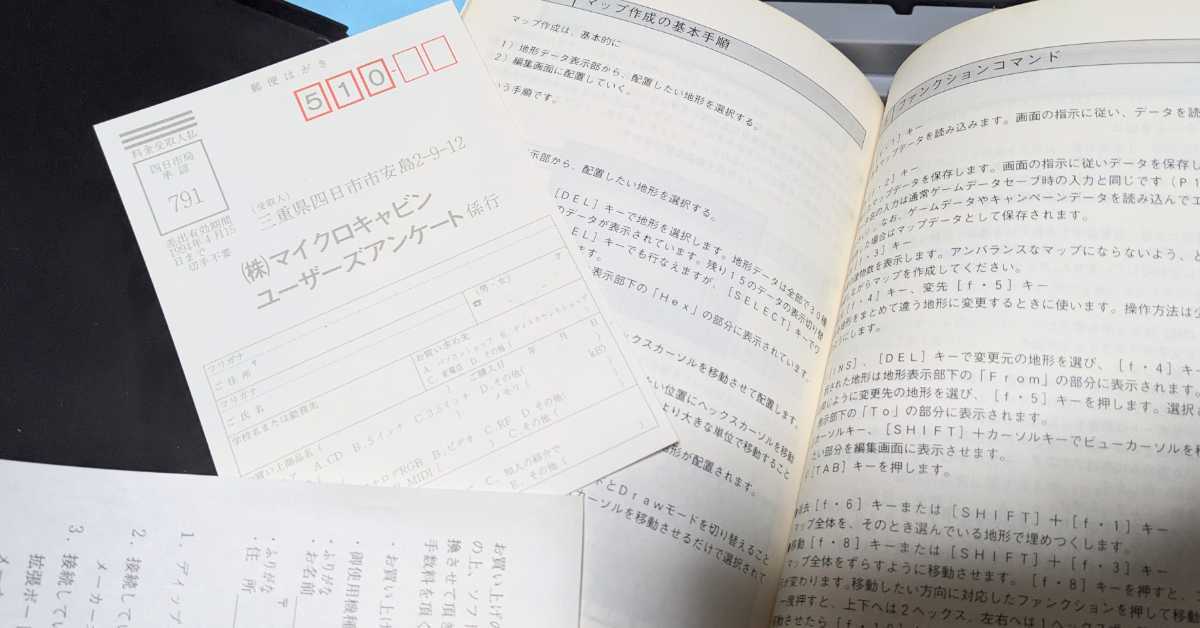 郵便はがき
510-
料金受取人払
四日市局
承認
791
差出有効期間
1994年4月15
日まで
切手不要
(受取人)
三重県四日市市安島2-9-12
(株)マイクロキャビン
ユーザーズアンケート係行
フリガナ
ご住所
〒
フリガナ
ご氏名
(男・女)
☎
学校名または勤務先
お買い求め先
ご購入日 年 月 日
お買い上げ商品名
A.CD B.5インチ C.3.5インチ D.その他(
メモリ( )kB
知人の紹介で
マップ作成の基本手順
マップ作成は、基本的に
1)地形データ表示部から、配置したい地形を選択する。
2)編集画面に配置していく。
う手順です。
示部から、配置したい地形を選択する。
[DEL]キーで地形を選択します。地形データは全部で30種
のデータが表示されています。残り15のデータの表示切り替
EL]キーでも行なえますが、[SELECT]キーでワ
ます。
表示部下の「Hex」の部分に表示されています。
ックスカーソルを移動させて配置します。
たい位置にヘックスカーソルを移動
より大きな単位で移動すること
地形が配置されます。
とDrawモードを切り替えること
カーソルを移動させるだけで選択されて
ファンクションコマンド
・1]キー
マップデータを読み込みます。画面の指示に従い、データを読
・2]キー
マップデータを保存します。画面の指示に従いデータを保存し
の入力は通常ゲームデータセーブ時の入力と同じです(P1
なお、ゲームデータやキャンペーンデータを読み込んでエ
た場合はマップデータとして保存されます。
・3]キー
建物数を表示します。アンバランスなマップにならないよう、と
ながらマップを作成してください。
・4]キー、変先[f・5]キー
地形をまとめて違う地形に変更するときに使います。操作方法は少
にします。
[INS]、[DEL]キーで変更元の地形を選び、[f・4]キー
された地形は地形表示部下の「From」の部分に表示されます。
同じように変更先の地形を選び、[f・5]キーを押します。選択
表示部下の「To」の部分に表示されます。
カーソルキー、[SHIFT]+カーソルキーでビューカーソルを移
たい部分を編集画面に表示させます。
[TAB]キーを押します。
消去[f・6]キーまたは[SHIFT]+[f・1]キー
マップ全体を、そのとき選んでいる地形で埋めつくします。
移動[f・8]キーまたは[SHIFT]+[f・3]キー
マップ全体をずらすように移動させます。[f・8]キーを押すと、
が変わります。移動したい方向に対応したファンクションを押して移動
一度押すと、上下へは2ヘックス、左右へは1ヘックス
お買い上げの
の上、ソフト
換させて頂き
手数料を頂く
・お買い上げ
・御使用機種
・ふりがな
お名前
・ふりがな
・住 所 〒
1.ディップ
2.接続してい
メーカー
3.接続してい
拡張ボー